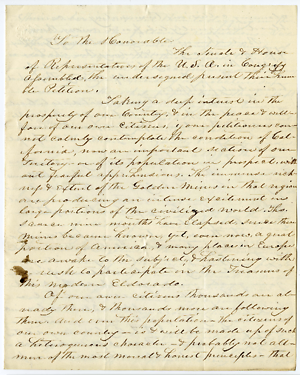 To the Honorable
The Senate & House
of Representatives of the U.S.A. in Congress
Assembled, the undersigned, present their hum-
ble Petition.
Taking a deep interest in the
prosperity of our Country, & in the peace & wel-
fare of our own Citizens, your petitioners can
not calmly contemplate the condition of Cal-
ifornia, now an important section of our
Territory, or of its population in prospect, with
out fearful apprehensions. The immense rich-
ness & extent of the Golden Mines in that region
are producing an intense excitement in
large portions of the civilized world. Tho
scarce nine months have elapsed since these
mines became known, yet, even now a great
portion of America, & many places in Europe
are awake to the subject, & hastening with
rush to participate in the Treasures of
this modern Eldorado.
Of our own citizens thousands are al-
ready there, & thousands more are following
them. And even this population - the citizens of
our own country - is & will be made up of such
a heterogenous character - & probably not all-
men of the most moral & honest principles - that